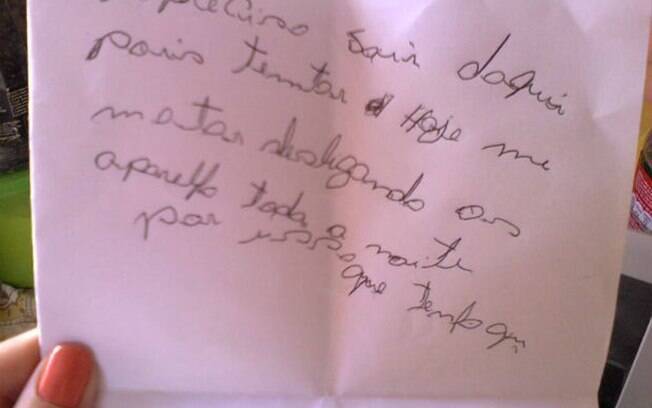 preciso sair daqui
pois tentar Hoje me
matar desligando os
aparelho toda a noite
por isso
que tenho q